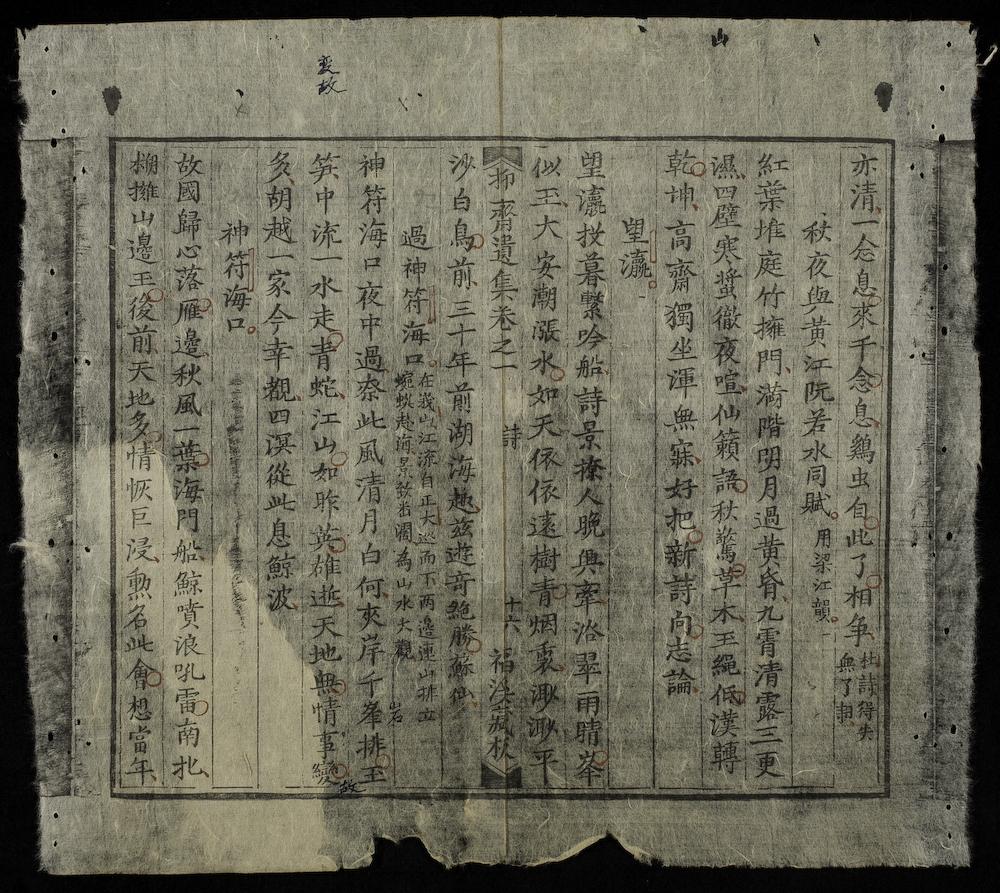 亦清一念息來千念息鷄虫自此了相争 杜詩得失
無了期
秋夜與黃江阮若水同賦 用梁江韻
紅葉堆庭竹擁門滿階明月過黃昏九霄清露三更
濕四壁寒螿徹夜喧仙籟語秋驚草木玉繩低漢轉
乾坤高齋獨坐渾無寐好把新詩向志論
望瀛
望瀛投暮繫吟船詩景撩人晚興牽浴翠雨晴峯
似玉大安潮漲水如天依依遠樹青烟裏渺渺平
抑齋遺集卷之一 詩 十六 福溪藏板
沙白鳥前三十年前湖海趣兹遊奇絶勝蘇仙
過神符海口 在莪山江流自正大巡而下两邉連山排立
蜿蜒赴海景致岩濶為山水大觀
神符海口夜中過奈此風清月白何夾岸千峯排玉
笋中流一水走青蛇江山如昨英雄逝天地無情事變
多胡越一家今幸覩四溟從此息鯨波
神符海口
故國歸心落雁邊秋風一葉海門船鯨噴浪吼雷南北
槊擁山邊玉後前天地多情恢巨浸勲名此會想當年
変故
山
岩
故